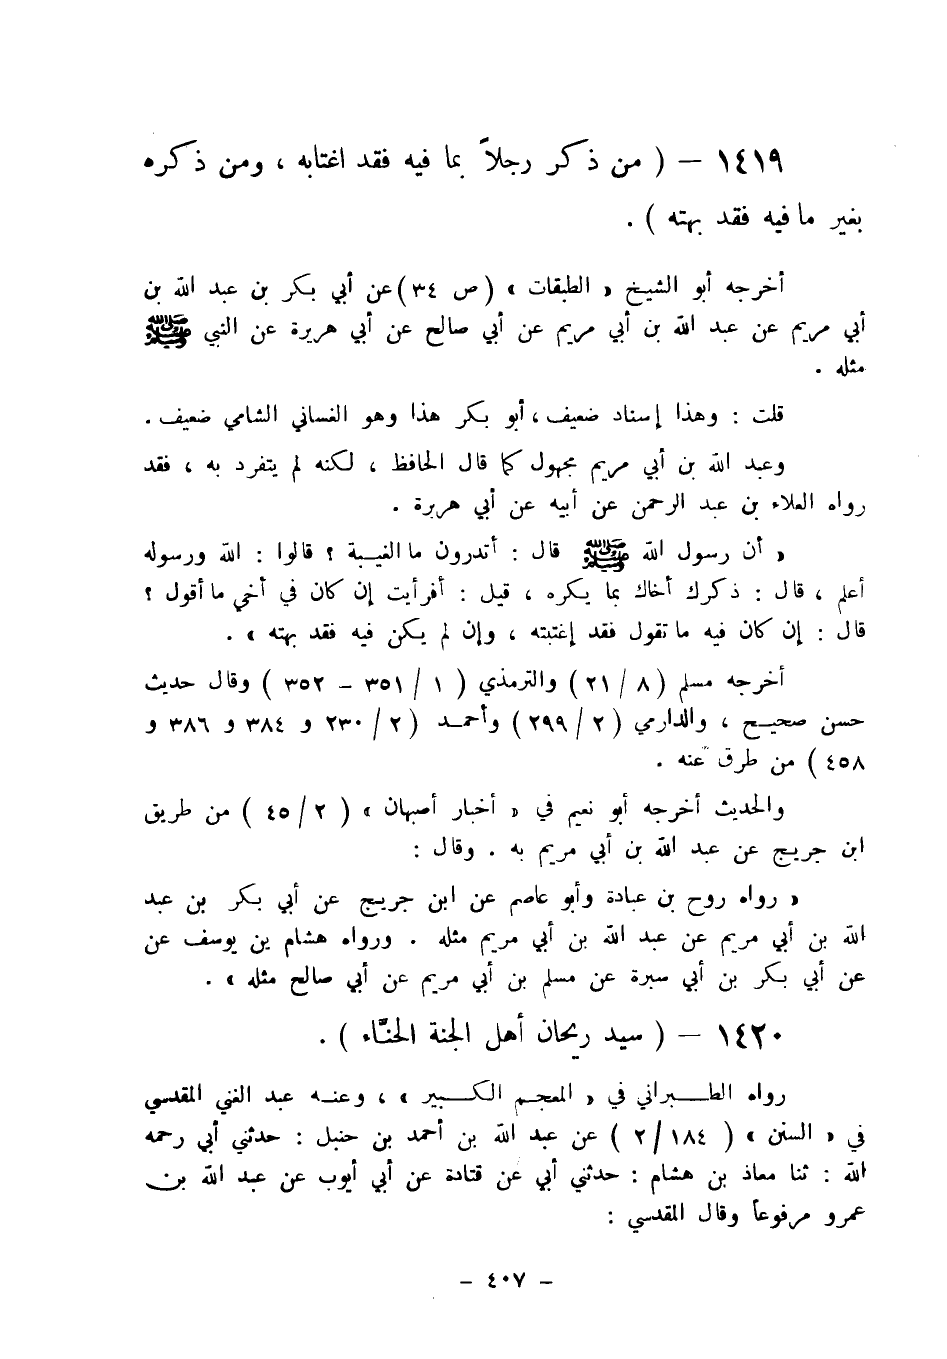 ١٤١٩ – ( من ذكر رجلاً بما فيه فقد اغتابه ، ومن ذكره
بغير ما فيه فقد بهته ) .
أخرجه أبو الشيخ « الطبقات » ( ص ٣٤ ) عن أبي بكر بن عبد الله بن
أبي مريم عن عبد الله بن أبي مريم عن أبي صالح عن أبي هريرة عن النبي ﷺ
مثله .
قلت : وهذا إسناد ضعيف ، أبو بكر هذا وهو الغساني الشامي ضعيف .
وعبد الله بن أبي مريم مجهول كما قال الحافظ ، لكنه لم يتفرد به ، فقد
رواه العلاء بن عبد الرحمن عن أبيه عن أبي هريرة .
« أن رسول الله ﷺ قال : أتدرون ما الغيبة ؟ قالوا : الله ورسوله
أعلم ، قال : ذكرك أخاك بما يكره ، قيل : أفرأيت إن كان في أخي ما أقول ؟
قال : إن كان فيه ما تقول فقد إغتبته ، وإن لم يكن فيه فقد بهته » .
أخرجه مسلم ( ٨ / ٢١ ) والترمذي ( ١ / ٣٥١ – ٣٥٢ ) وقال حديث
حسن صحيح ، والدارمي ( ٢ / ٢٩٩ ) وأحمد ( ٢ / ٢٣٠ و ٣٨٤ و ٣٨٦ و
٤٥٨ ) من طرق عنه .
والحديث أخرجه أبو نعيم في « أخبار أصبهان » ( ٢ / ٤٥ ) من طريق
ابن جريج عن عبد الله بن أبي مريم به . وقال :
« رواه روح بن عبادة وأبو عاصم عن ابن جريج عن أبي بكر بن عبد
الله بن أبي مريم عن عبد الله بن أبي مريم مثله . ورواه هشام بن يوسف عن
عن أبي بكر بن أبي سبرة عن مسلم بن أبي مريم عن أبي صالح مثله » .
١٤٢٠ – ( سيد ريحان أهل الجنة الحنَّاء ) .
رواه الطبراني في « المعجم الكبير » ، وعنه عبد الغني المقدسي
في « السنن » ( ١٨٤ / ٢ ) عن عبد الله بن أحمد بن حنبل : حدثني أبي رحمه
الله : ثنا معاذ بن هشام : حدثني أبي عن قتادة عن أبي أيوب عن عبد الله بن
عمرو مرفوعاً وقال المقدسي :
– ٤٠٧ –